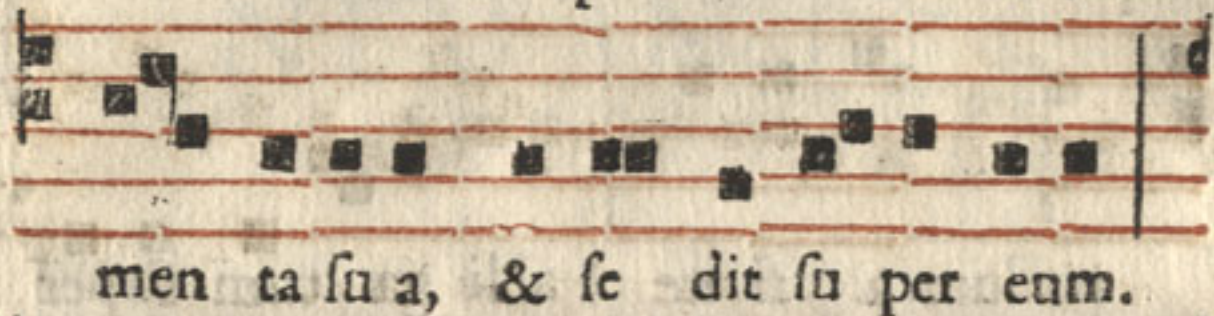 men ta ſu a, & ſe dit ſu per eum.